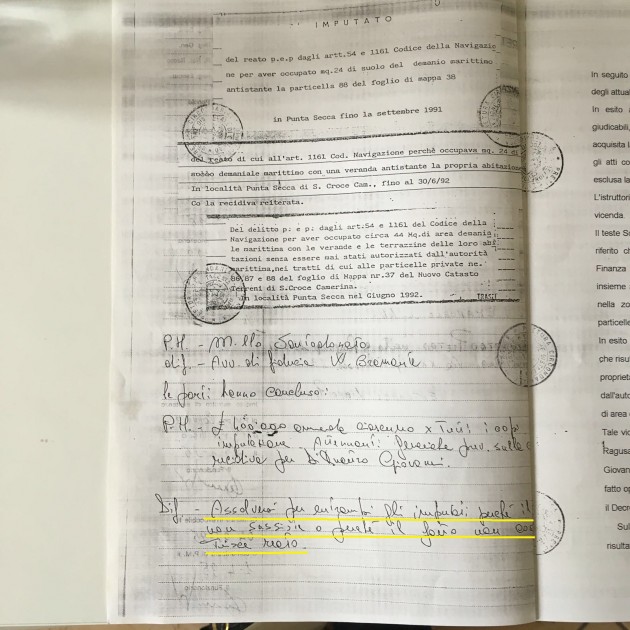 IMPUTATO
del reato p.e.p dagli artt.54 e 1161 Codice della Navigazio
ne per aver occupato mq.24 di suolo del demanio marittimo
antistante la particella 88 del foglio di mappa 38
in Punta Secca fino la settembre 1991
del reato di cui all'art. 1161 Cod. Navigazione perchè occupava mq. 24 di
demaniale marittimo con una veranda antistante la propria abitazione
In località Punta Secca di S. Croce Cam., fino al 30/6/92
Co la recidiva reiterata.
Del delitto p: e p: dagli art.54 e 1161 del Codice della
Navigazione per aver occupato circa 44 Mq.di area demania
le marittima con le verande e le terrazzine delle loro abi
tazioni senza essere mai stati autorizzati dall'autorità
marittima,nei tratti di cui alle particelle private ne.
86,87 e 88 del foglio di Mappa nr.37 del Nuovo Catasto
Terreni di S.Croce Camerina.
In località Punta Secca nel Giugno 1992.
P.M. - M.llo
dif. - Avv. di fiducia
le parti hanno concluso:
P.M. - £ 400.000 ammenda ciascuno x tutti i capi
imputazione Attenuanti generiche
recidiva per Giovanni.
Dif. - Assolversi per entrambi gli imputati perché il
non sussiste o perché il fatto non cos
tuisce reato.
In seguito
degli attual
In esito
giudicabili,
acquisita l
gli atti co
esclusa la
L'istruttori
vicenda.
Il teste S
riferito ch
Finanza
insieme
nella zo
particelle
In esito
che risul
proprietà
dall'auto
di area
Tale vic
Ragusa
Giovan
fatto op
il Decre
Sul
risulta